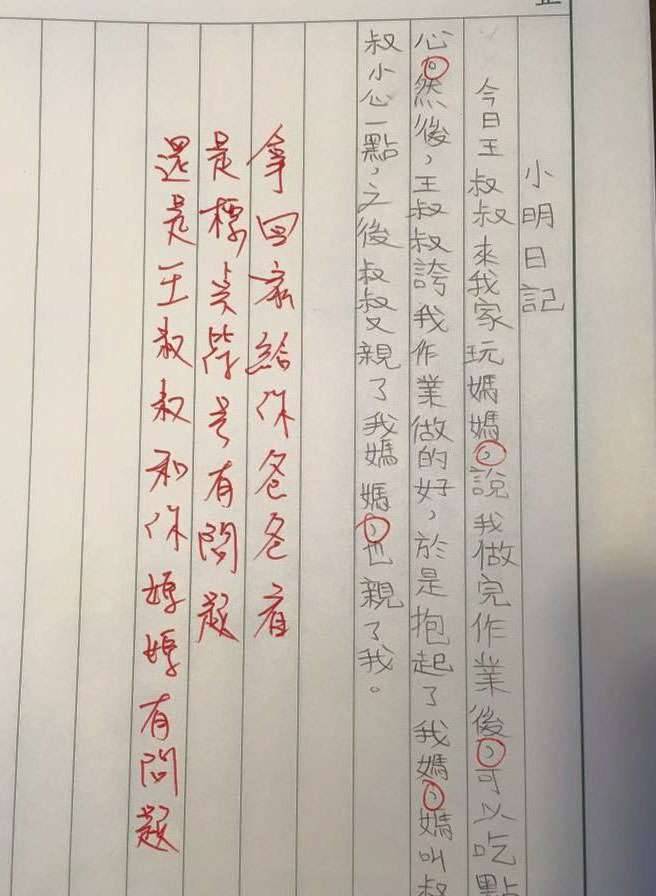 小明日記
今日王叔叔來我家玩媽媽，說我做完作業後，可以吃點
心。然後，王叔叔誇我作業做的好，於是抱起了我媽，媽叫叔
叔小心一點，之後叔叔又親了我媽媽，也親了我。
拿回家給你爸爸看
是標點符号有問題
還是王叔叔和你媽媽有問題